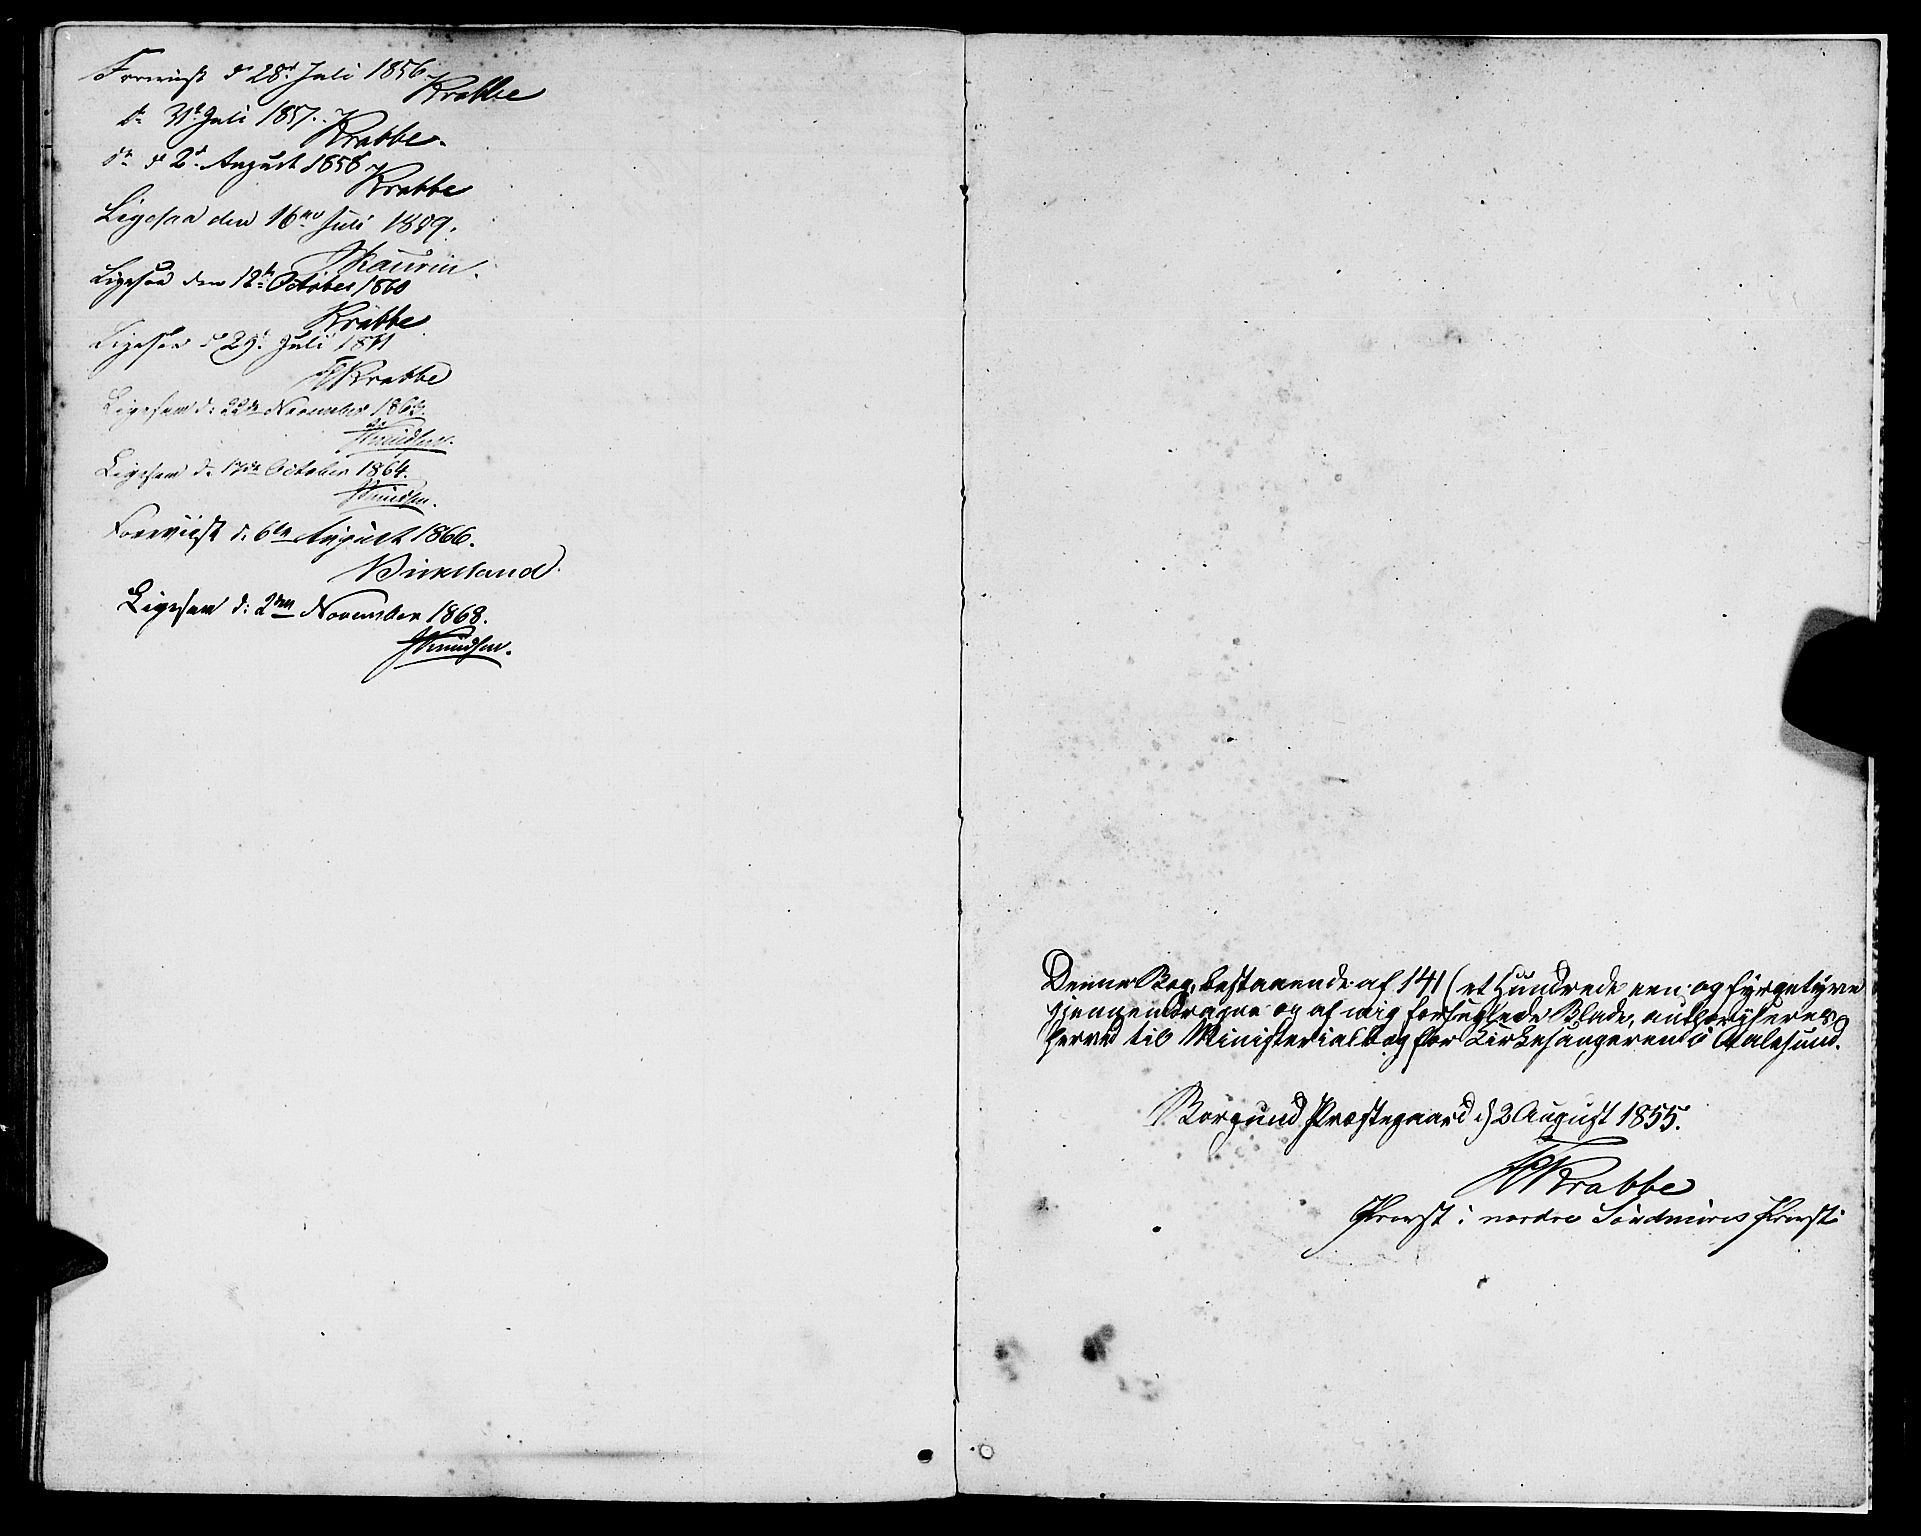 Foreviist d 28d Juli 1856.
Krabbe
do 31d Juli 1857.
Krabbe.
do d 2d August 1858
Krabbe
Ligesaa den 16de Juli 1859.
Maurin.
Ligesaa den 12te October 1860
Krabbe
Ligesaa d 29d Juli 1861
Krabbe
Ligesaa d: 22de November 1862.
Knudsen.
Ligesaa d: 17de October 1864.
Knudsen.
Foreviist d: 6te August 1866.
Birkeland.
Ligesaa d: 2den November 1868.
Knudsen.
Denne Bog, bestaaende af 141 (et Hundrede een og fyrgetyve
gjennemdragne og af mig forseglede Blade, authoriseres
herved til Ministerialbog for Kirkesangeren i Aalesund.
Borgund Præstegaard d 2 August 1855.
Krabbe
Provst i nordre Søndmøres Provsti